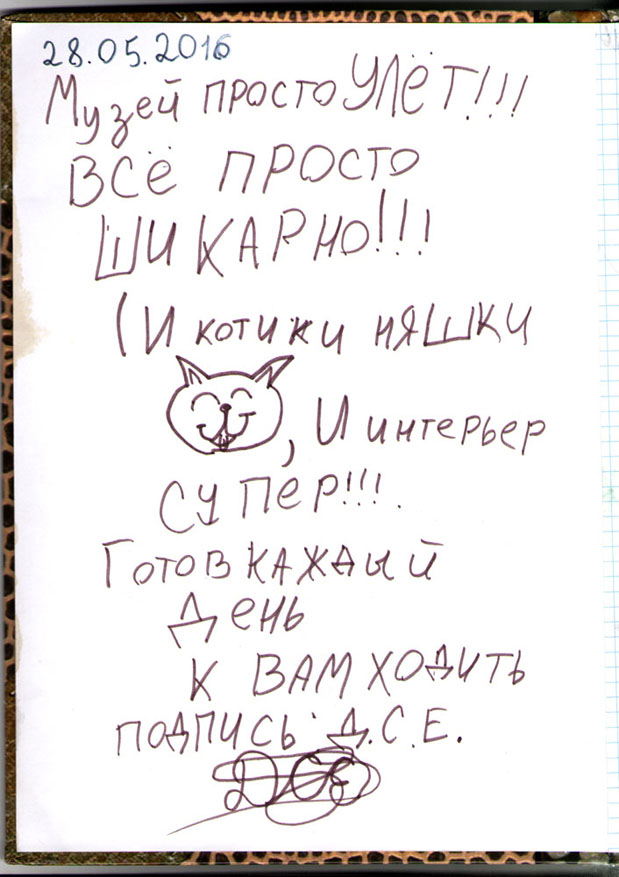 28.05.2016
Музей просто УЛЁТ!!!
ВСЁ ПРОСТО
ШИКАРНО!!!
(И котики няшки
, И интерьер
супер!!!.
Готов каждый
День
к вам ходить
подпись: Д.С.Е.
ДСЕ